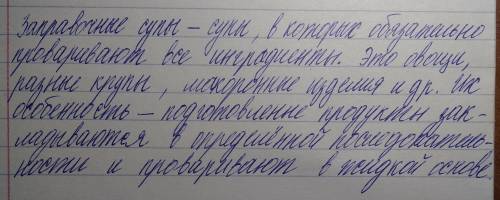 Заправочные супы – супы, в которых обязательно
проваривают все ингредиенты. Это овощи,
разные крупы, макоронные изделия и др. Их
особенность – подготовленные продукты зак-
ладываются в определённой последователь-
ности и проваривают в жидкой основе.